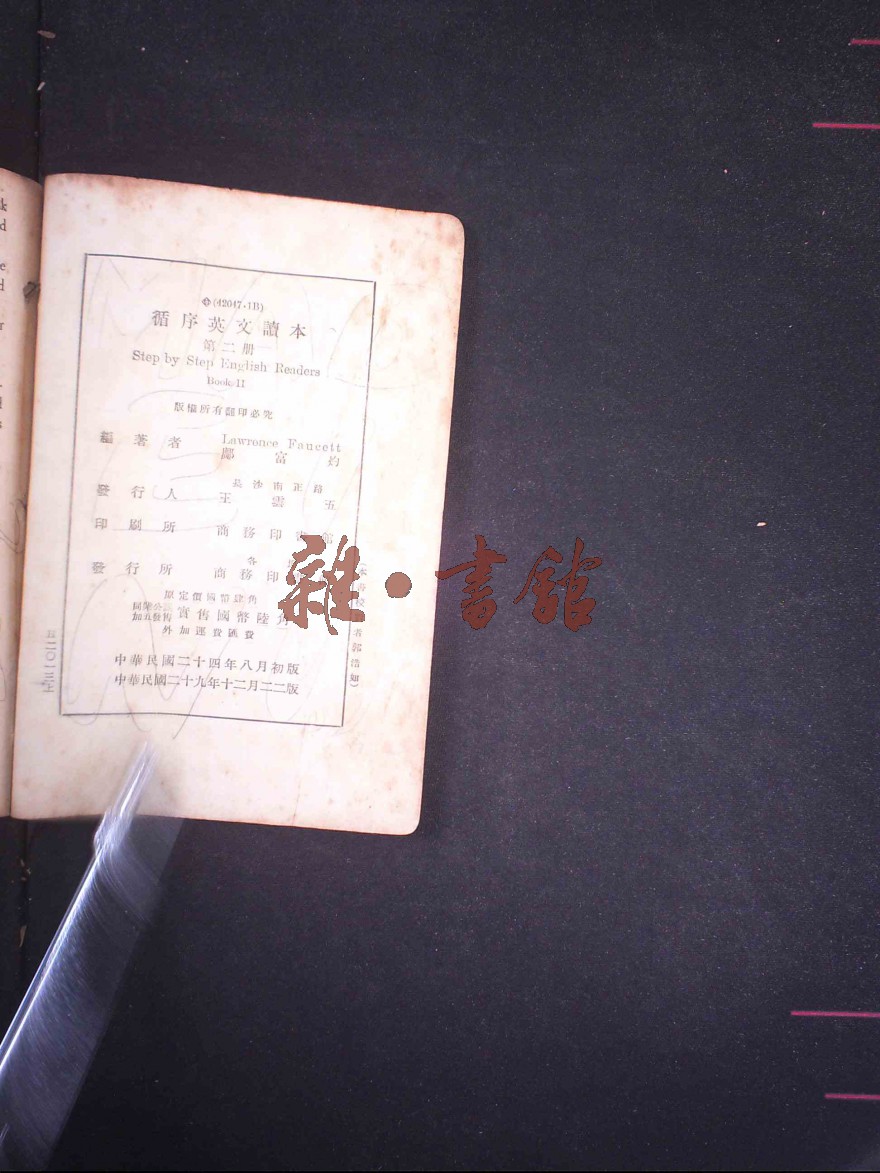 (42047·1B)
循序英文讀本
第二册
Step by Step English Readers
Book II
版權所有翻印必究
編著者 Lawrence Faucett
鄺富灼
長沙南正路
發行人 王雲五
印刷所 商務印書館
各
發行所 商務印
原定價國幣肆角
實售國幣陸角
加五發售
外加運費匯費
中華民國二十四年八月初版
中華民國二十九年十二月二二版
者郭浩如)
雜·書館